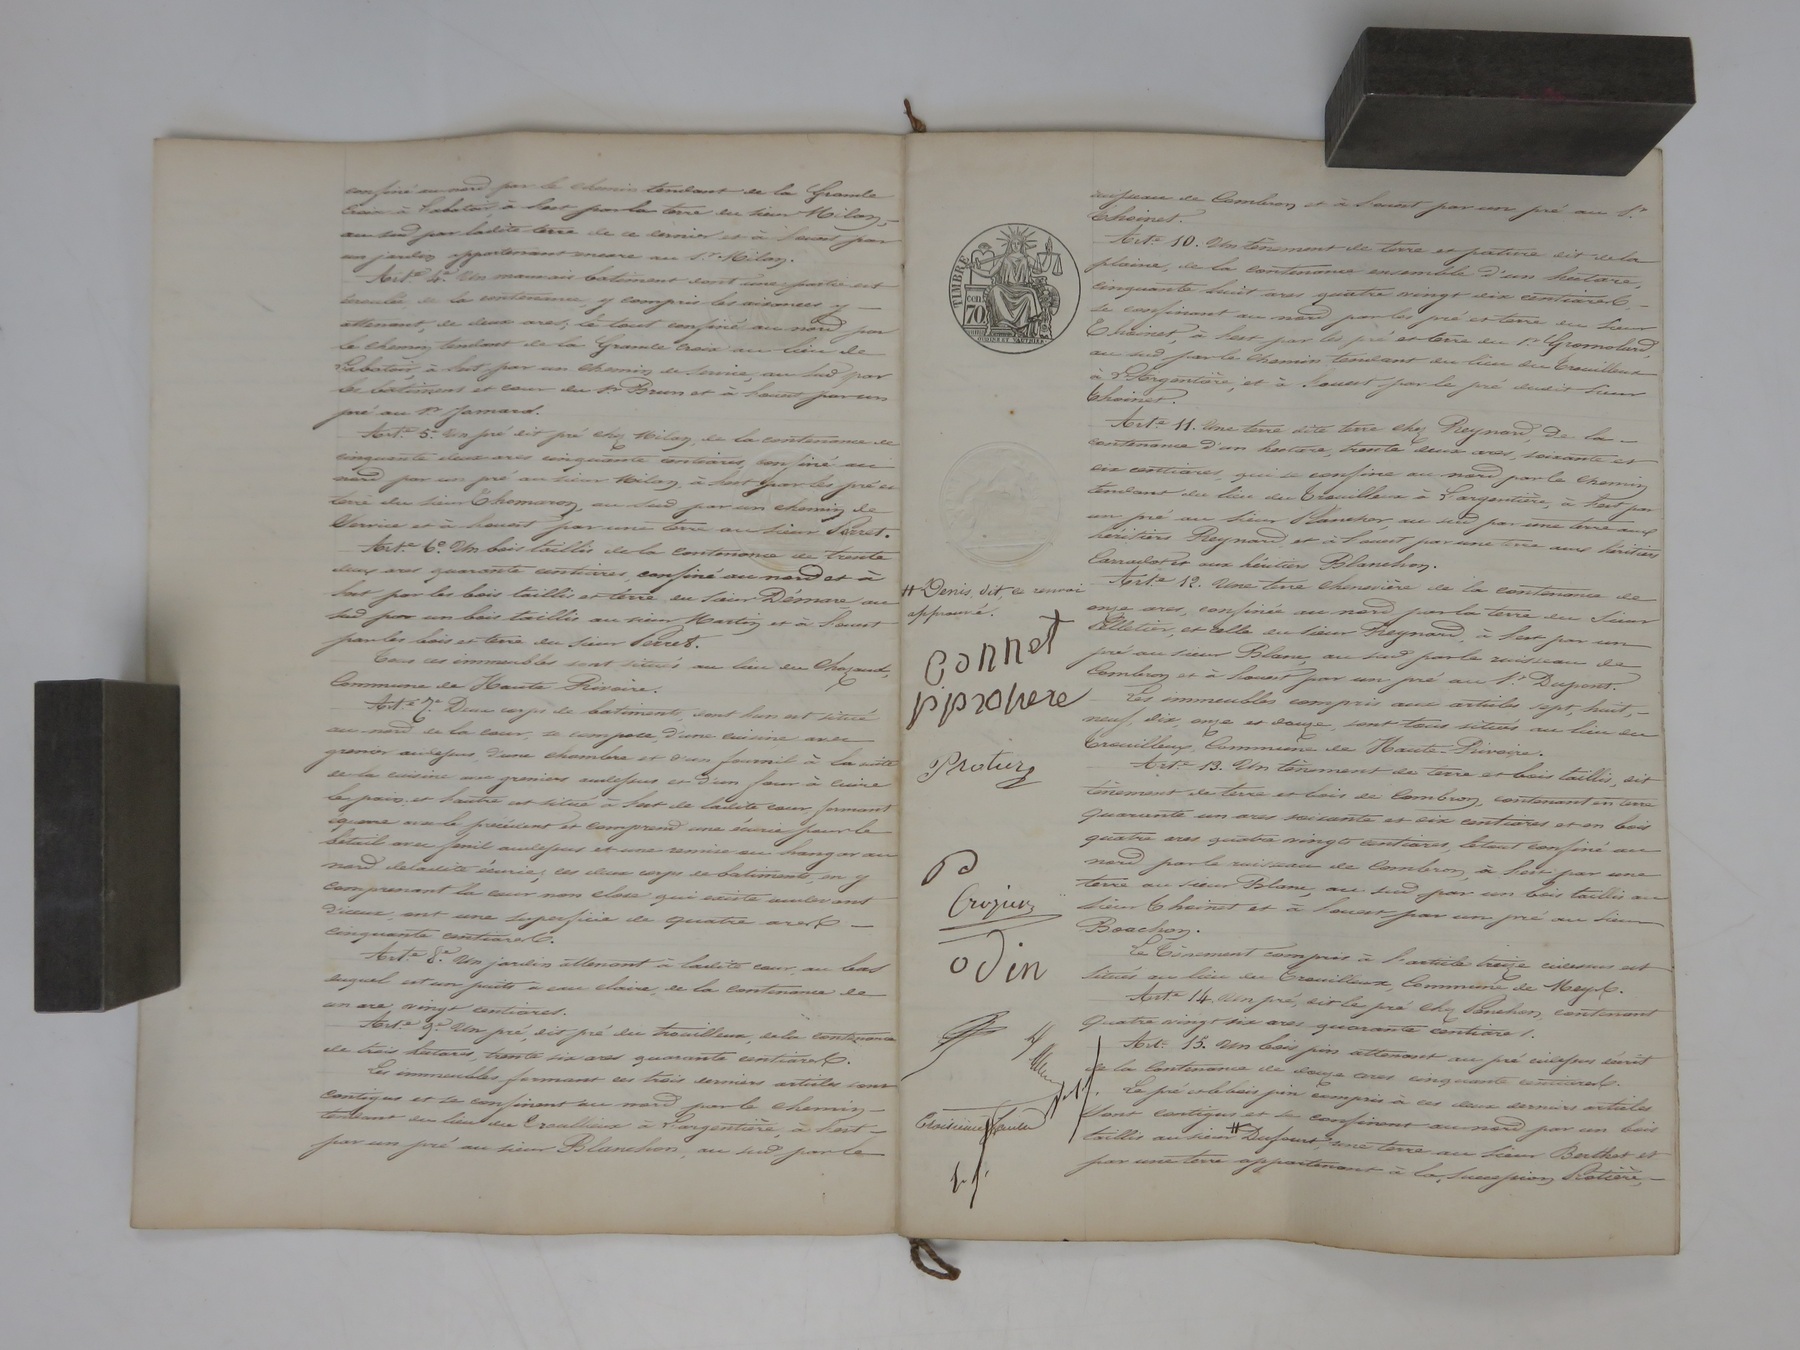 confiné au nord par le chemin tendant de la Grande
Croix à l'abatoir, à l'est par la terre du sieur Milan,
au sud par ladite terre de ce dernier et à l'ouest par
un jardin appartenant encore au Sr. Milan.
Art.e 4.e Un mauvais bâtiment dont une partie est
écroulée de la contenance, y compris les aisances y
attenant, de deux ares; le tout confiné au nord par
le chemin tendant de la Grande Croix au lieu de
l'abatoir, à l'est par un chemin de service, au sud par
le bâtiment et cour du Sr. Brun et à l'ouest par un
pré au Sr. Jamard.
Art.e 5.e Un pré dit pré chez Milan, de la contenance de
cinquante deux ares cinquante centiares, confiné au
nord par un pré au sieur Milan, à l'est par les pré et
terre du sieur Thomaron, au sud par un chemin de
service et à l'ouest par une terre au sieur Perret.
Art.e 6.e Un bois taillis de la contenance de trente
deux ares quarante centiares, confiné au nord et à
l'est par les bois taillis et terre du sieur Démare, au
sud par un bois taillis au sieur Martin et à l'ouest
par les bois et terre du sieur Perret.
Tous ces immeubles sont situés au lieu du Chazaud,
Commune de Haute Rivoire.
Art.e 7.e Deux corps de bâtiments, dont l'un est situé
au nord de la cour, se compose d'une cuisine avec
grenier audessus, d'une chambre et d'un fournil à la suite
de la cuisine avec greniers audessus et d'un four à cuire
le pain, et l'autre est situé à l'est de ladite cour, formant
équerre avec le précédent et comprend une écurie pour le
bétail avec fenil audessus et une remise ou hangar au
nord de ladite écurie; ces deux corps de bâtiments, en y
comprenant la cour non close qui existe audevant
d'iceux, ont une superficie de quatre ares
cinquante centiares.
Art.e 8.e Un jardin attenant à ladite cour, au bas
duquel est un puits à eau claire, de la contenance de
un are vingt centiares.
Art.e 9.e Un pré, dit pré du trouilleux, de la contenance
de trois hectares, trente six ares quarante centiares.
Les immeubles formant ces trois derniers articles sont
contigus et se confinent au nord par le chemin
tendant du lieu du Trouilleux à l'argentière, à l'est
par un pré au sieur Blanchon, au sud par le
TIMBRE
70
# Denis, dit, ce renvoi
approuvé.
Connet
Protier
Crozier
odin
ruisseau de Combron et à l'ouest par un pré au Sr.
Thoinet.
Art.e 10. Un tènement de terre et pature dit de la
plaine, de la contenance ensemble d'un hectare,
cinquante huit ares quatre vingt dix centiares,
se confinant au nord par les pré et terre du sieur
Thoinet, à l'est par les pré et terre du Sr. Gromolard,
au sud par le chemin tendant du lieu du Trouilleux
à l'Argentière, et à l'ouest par le pré dudit sieur
Thoinet.
Art.e 11. Une terre dite terre chez Reynard, de la
contenance d'un hectare, trente deux ares, soixante et
dix centiares, qui se confine au nord par le chemin
tendant du lieu du Trouilleux à l'argentière, à l'est par
un pré au sieur Plancher au sud par une terre aux
héritiers Reynard, et à l'ouest par une terre aux héritiers
et aux héritiers Blanchon.
Art.e 12. Une terre chenevière de la contenance de
onze ares, confinée au nord par la terre du sieur
Pelletier, et celle du sieur Reynard, à l'est par un
pré au sieur Blanc, au sud par le ruisseau de
Combron et à l'ouest par un pré au Sr. Dupont.
Les immeubles compris aux articles sept, huit,
neuf, dix, onze et douze, sont tous situés au lieu du
Trouilleux, Commune de Haute-Rivoire.
Art.e 13. Un tènement de terre et bois taillis, dit
tènement de terre et bois de Combron, contenant en terre
quarante un ares soixante et dix centiares et en bois
quatre ares quatre vingts centiares, le tout confiné au
nord par le ruisseau de Combron, à l'est par une
terre au sieur Blanc, au sud par un bois taillis au
sieur Thoinet et à l'ouest par un pré au sieur
Bouchon.
Le Tènement compris à l'article treize cidessus est
situé au lieu du Trouilleux, Commune de Meys.
Art.e 14. Un pré, dit le pré chez Ponchon, contenant
quatre vingt six ares quarante centiares.
Art.e 15. Un bois pin attenant au pré cidessus décrit
de la contenance de douze ares cinquante centiares.
Le pré et le bois pin compris à ces deux derniers articles
sont contigus et se confinent au nord par un bois
taillis au sieur # Dufour, une terre au sieur Berthet et
par une terre appartenant à la succession Rotière,